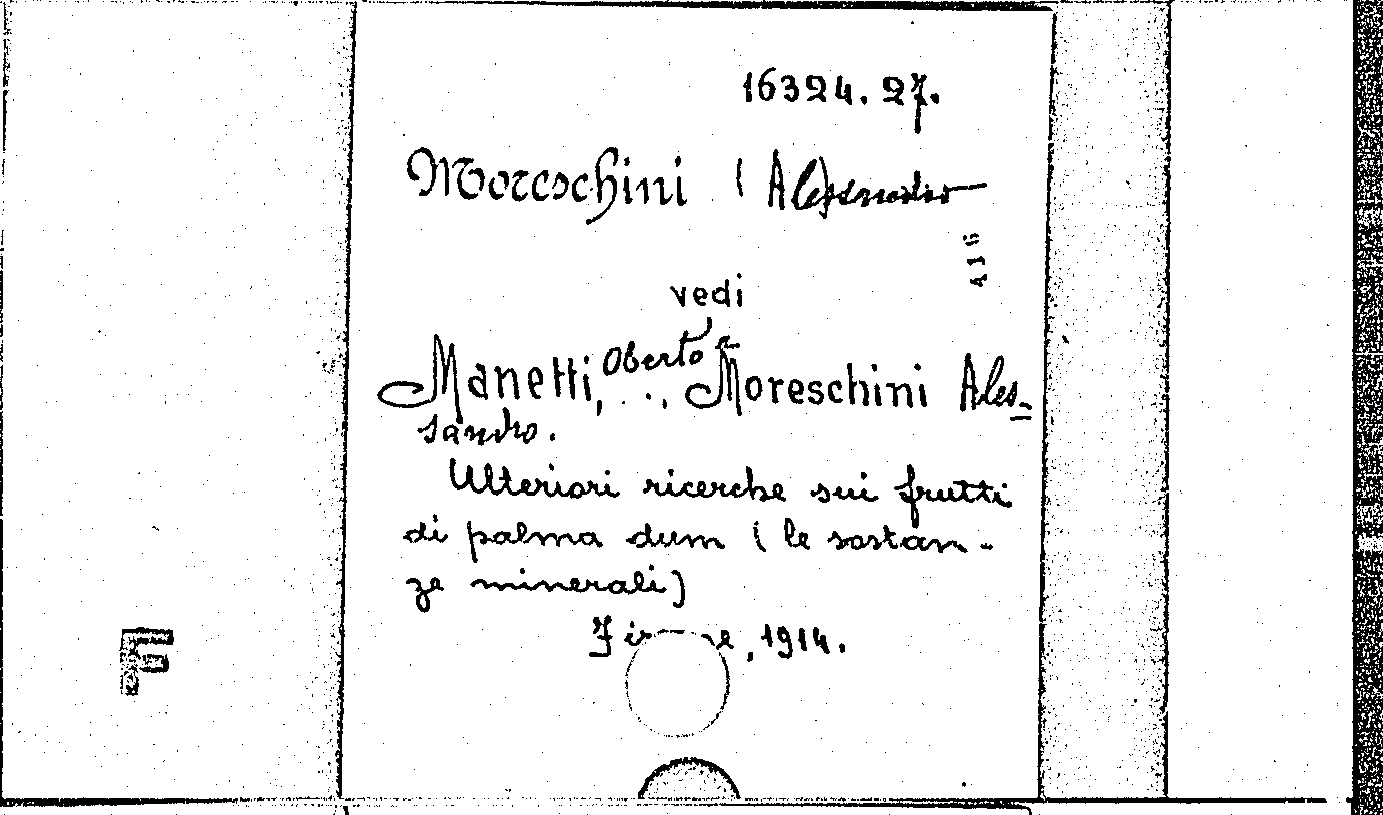 16324.27.
Moreschini (Alessandro
416
vedi
Manetti, Oberto e Moreschini Ales-
sandro.
Ulteriori ricerche sui frutti
di palma dum (le sostan-
ze minerali)
1914.
F